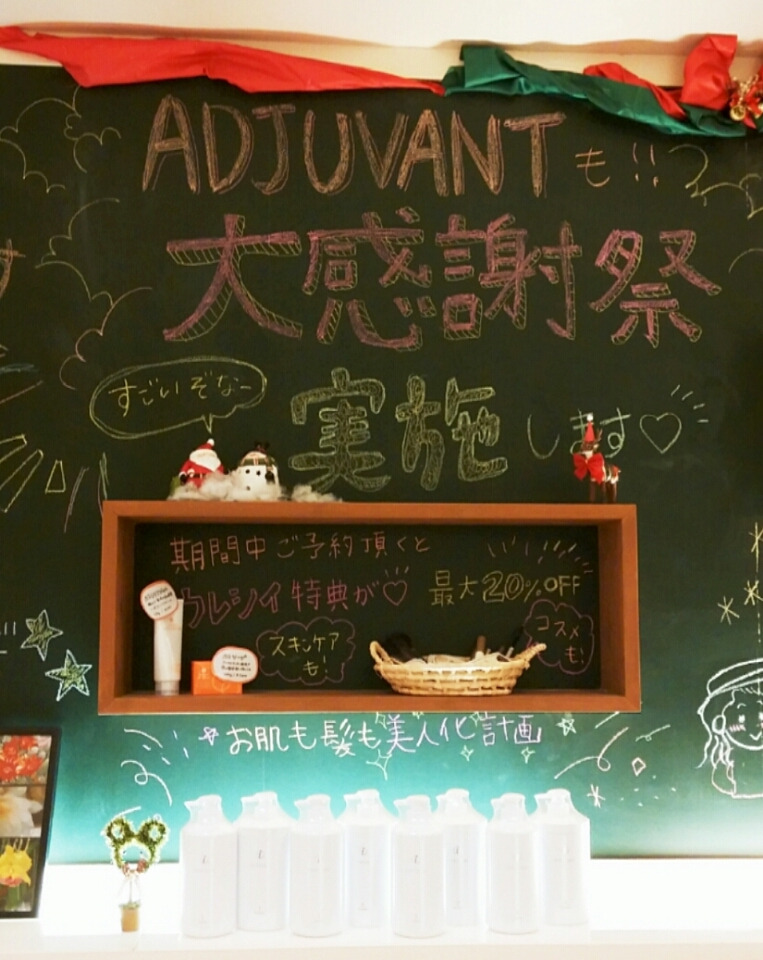 ADJUVANT も!!
大感謝祭
すごいぞなー
実施します♡
期間中ご予約頂くと
ウレシイ特典が♡
最大20%OFF
スキンケア
も!
コスメ
も!
お肌も髪も美人化計画